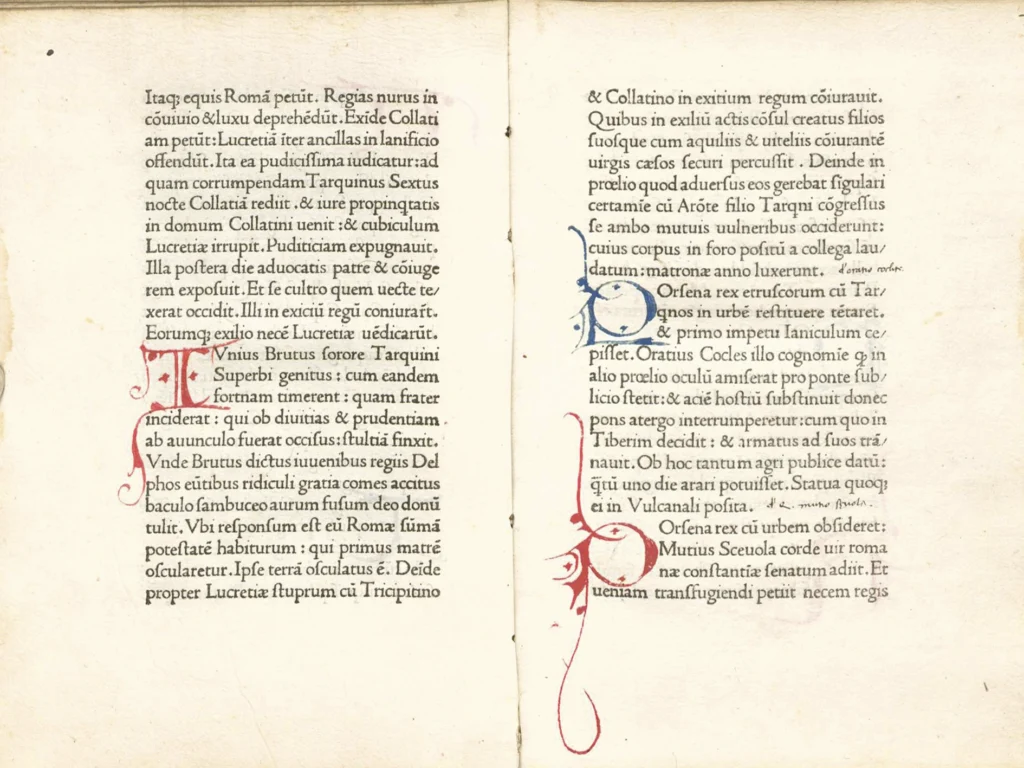 Itaq; equis Romā petūt. Regias nurus in
cōuiuio &luxu deprehēdūt. Exīde Collati
am petūt: Lucretiā īter ancillas in lanificio
offendūt. Ita ea pudiciſſima iudicatur: ad
quam corrumpendam Tarquinus Sextus
nocte Collatiā rediit .& iure propinq̄tatis
in domum Collatini uenit :& cubiculum
Lucretiæ irrupit. Puditiciam expugnauit.
Illa poſtera die aduocatis patre & cōiuge
rem expoſuit. Et ſe cultro quem ueſte te/
xerat occidit. Illi in exiciū regū coniurar̄t.
Eorumq; exilio necē Lucretiæ uēdicarūt.
IVnius Brutus ſorore Tarquini
Superbi genitus : cum eandem
fortnam timerent : quam frater
inciderat : qui ob diuitias & prudentiam
ab auunculo fuerat occiſus: ſtultiā finxit.
Vnde Brutus dictus iuuenibus regiis Del
phos eūtibus ridiculi gratia comes accitus
baculo ſambuceo aurum fuſum deo donū
tulit. Vbi reſponſum eſt eū Romæ ſūmā
poteſtatē habiturum : qui primus matrē
oſcularetur. Ipſe terrā oſculatus ē. Deīde
propter Lucretiæ ſtuprum cū Tricipitino
& Collatino in exitium regum cōiurauit.
Quibus in exiliū actis cōſul creatus filios
ſuoſque cum aquiliis & uiteliis cōiurantē
uirgis cæſos ſecuri percuſſit . Deinde in
prœlio quod aduerſus eos gerebat ſīgulari
certamīe cū Arōte filio Tarqni cōgreſſus
ſe ambo mutuis uulneribus occiderunt:
cuius corpus in foro poſitū a collega lau/
datum: matronæ anno luxerunt. d'oratio coclite
POrſena rex etruſcorum cū Tar/
qnos in urbē reſtituere tētaret.
& primo impetu Ianiculum ce/
piſſet. Oratius Cocles illo cognomīe qꝫ in
alio prœlio oculū amiſerat pro ponte ſub/
licio ſtetit: & aciē hoſtiū ſubſtinuit donec
pons atergo interrumperetur: cum quo in
Tiberim decidit : & armatus ad ſuos trā/
nauit. Ob hoc tantum agri publice datū:
q̄tū uno die arari potuiſſet. Statua quoq;
ei in Vulcanali poſita. mutio sceuola.
POrſena rex cū urbem obſideret:
Mutius Sceuola corde uir roma
næ conſtantiæ ſenatum adiit. Et
ueniam transfugiendi petiit necem regis